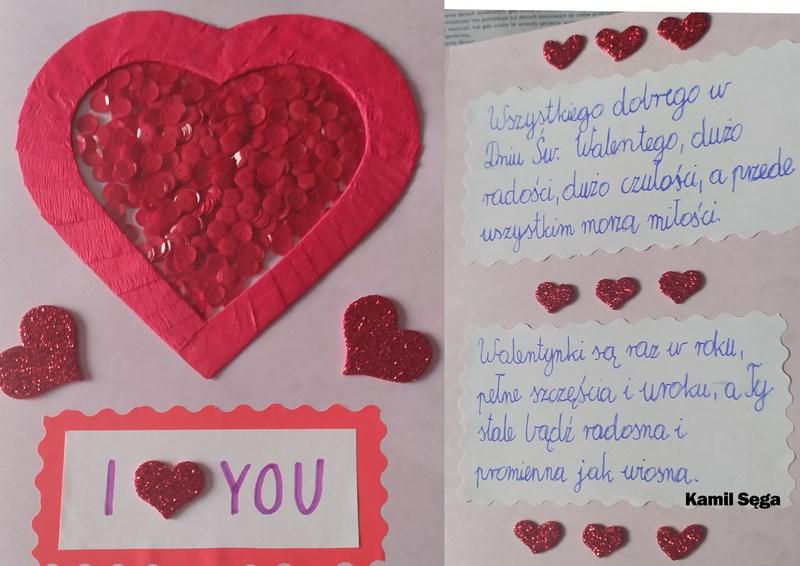 I YOU
Wszystkiego dobrego w
Dniu Św. Walentego, dużo
radości, dużo czułości, a przede
wszystkim morza miłości.
Walentynki są raz w roku,
pełne szczęścia i uroku, a Ty
stale bądź radosna i
promienna jak wiosna.
Kamil Sęga